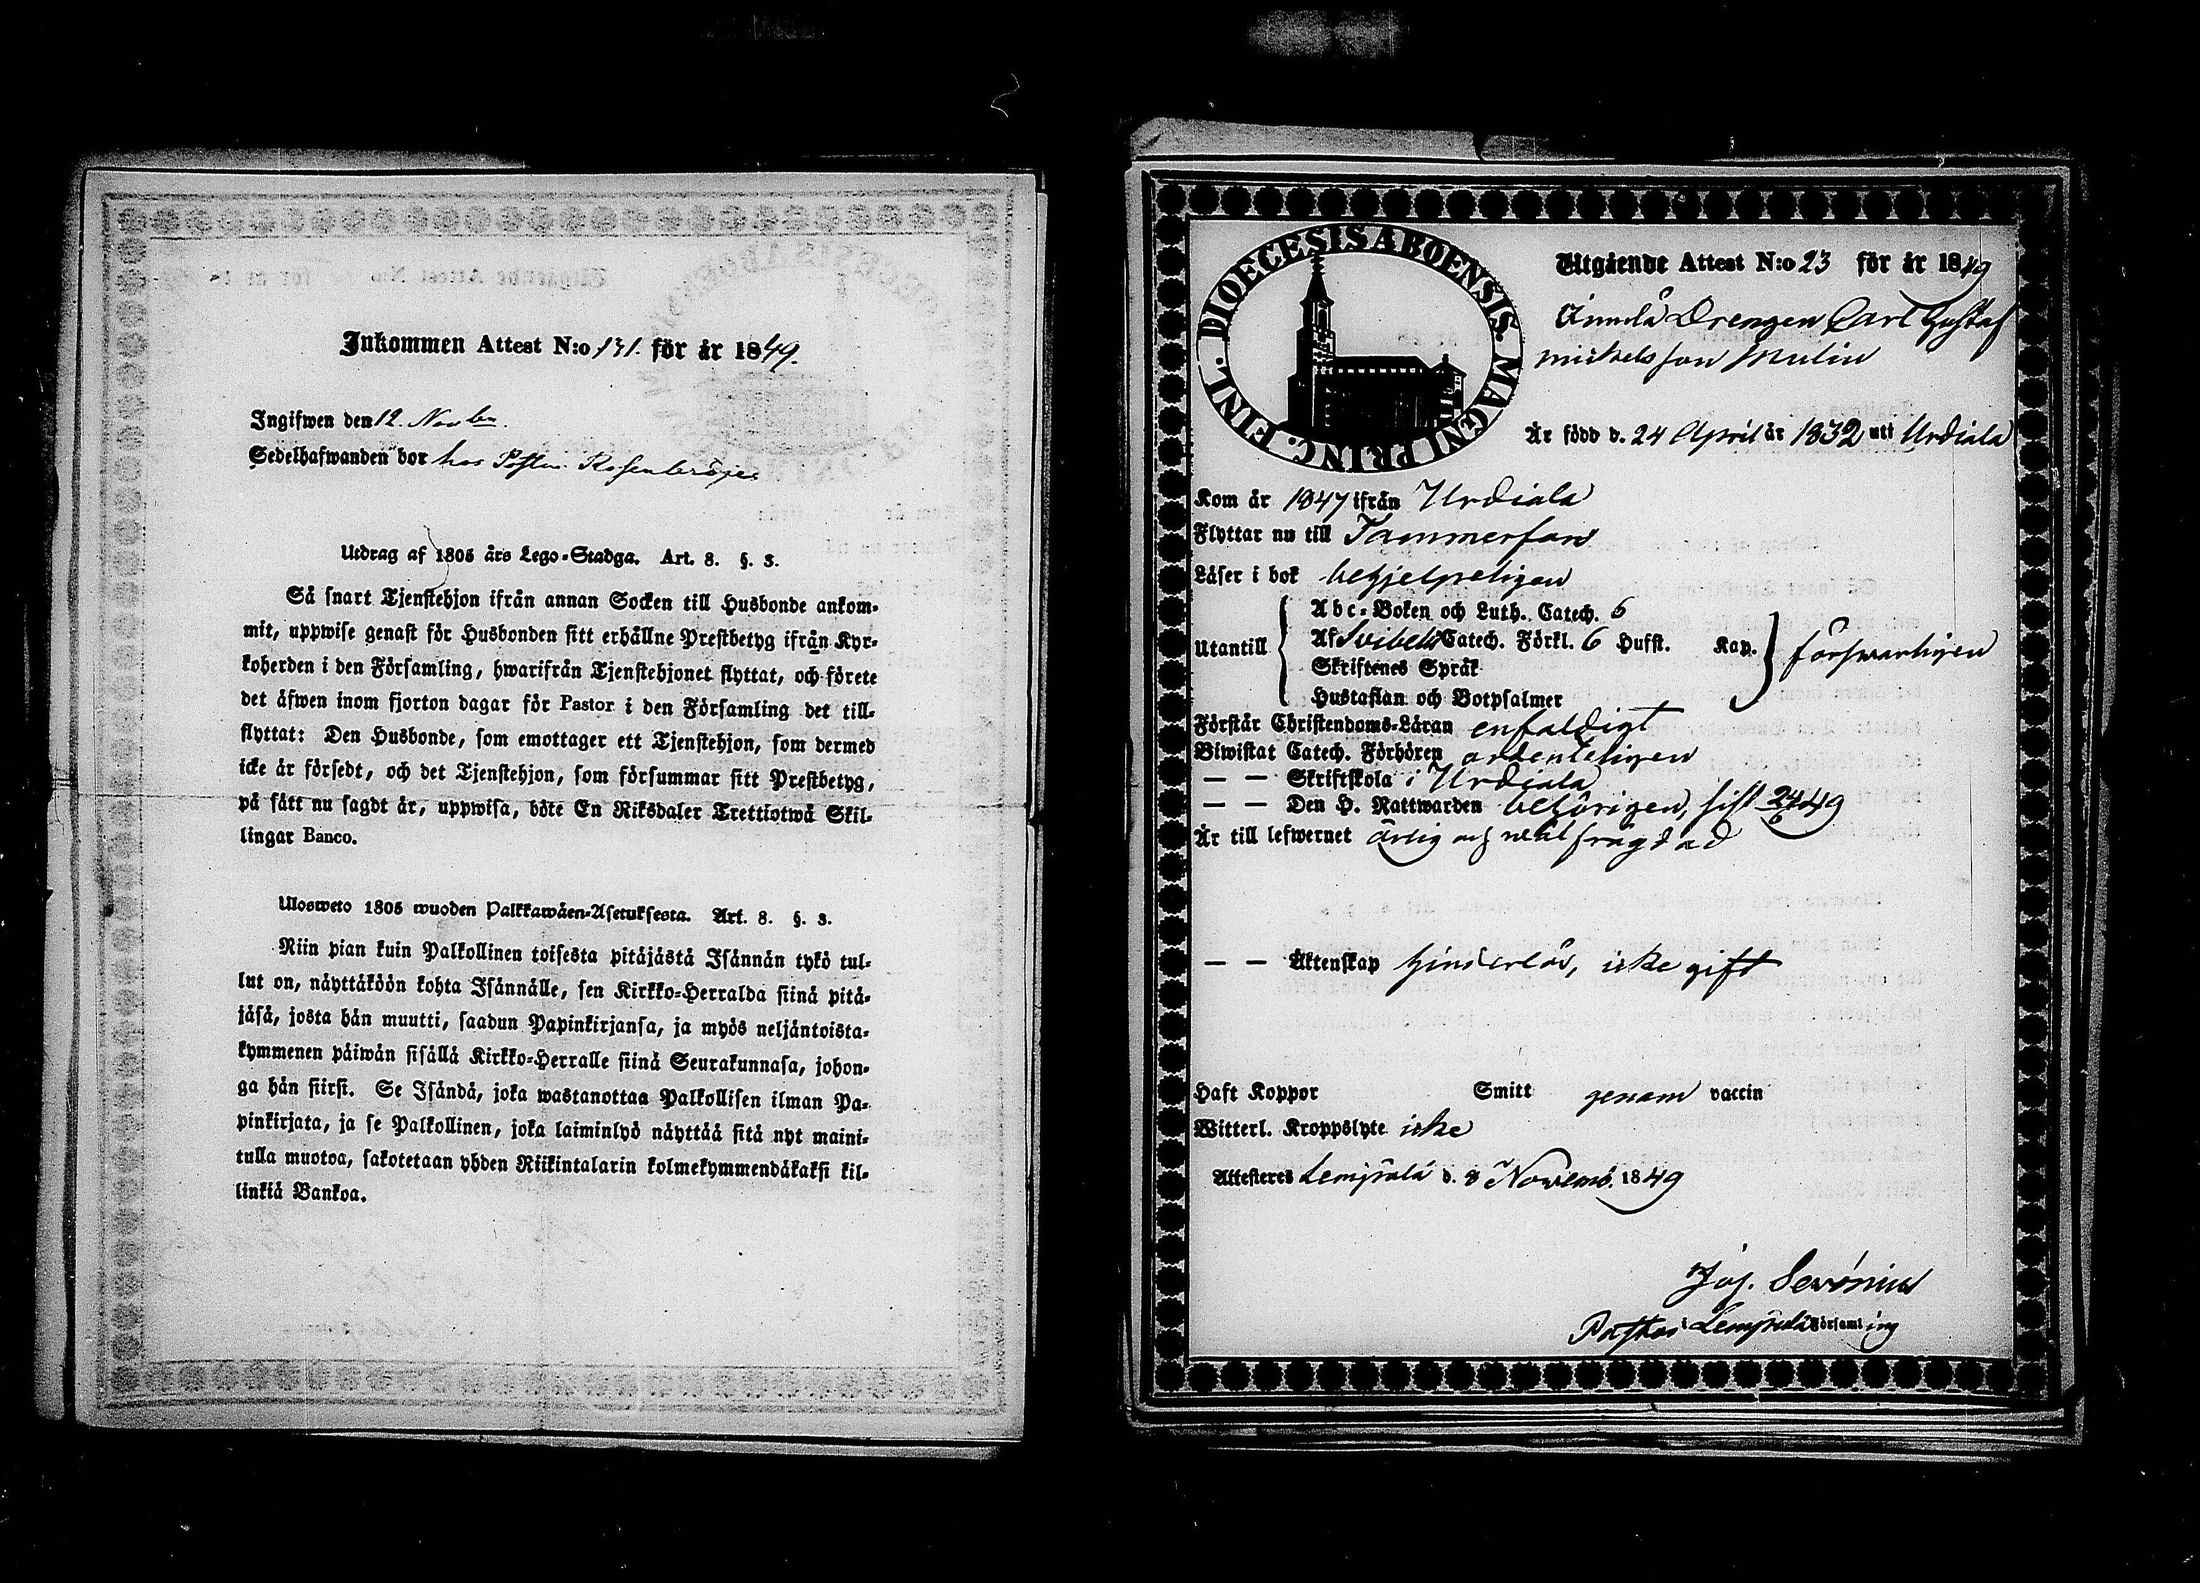 Inkommen Attest N:o 131. för år 1849.
Ingifwen den 12. Novber
Sedelhafwanden bor hos
Utdrag af 1805 års Lego-Stadga. Art. 8. §. 3.
Så snart Tjenstehjon ifrån annan Socken till Husbonde ankom-
mit, uppwise genast för Husbonden sitt erhållne Prestbetyg ifrån Kyr-
koherden i den Församling, hwarifrån Tjenstehjonet flyttat, och förete
det äfwen inom fjorton dagar för Pastor i den Församling det till-
flyttat: Den Husbonde, som emottager ett Tjenstehjon, som dermed
icke är försedt, och det Tjenstehjon, som försummar sitt Prestbetyg,
på sätt nu sagdt är, uppwisa, böte En Riksdaler Trettiotwå Skil-
lingar Banco.
Ulosweto 1805 wuoden Palkkawäen-Asetuksesta. Art. 8. §. 3.
Niin pian kuin Palkollinen toisesta pitäjästä Isännän tykö tul-
lut on, näyttäköön kohta Isännälle, sen Kirkko-Herralda siinä pitä-
jäsä, josta hän muutti, saadun Papinkirjansa, ja myös neljäntoista-
kymmenen päiwän sisällä Kirkko-Herralle siinä Seurakunnasa, johon-
ga hän siirsi. Se Isändä, joka wastanottaa Palkollisen ilman Pa-
pinkirjata, ja se Palkollinen, joka laiminlyö näyttää sitä nyt maini-
tulla muotoa, sakotetaan yhden Riikintalarin kolmekymmendäkaksi kil-
linkiä Bankoa.
FINL. DIOECESIS ABOENSIS. MAGNI PRINC.
Utgående Attest N:o 23 för år 1849
Drengen Carl Gustaf
Mickelsson Malin
Är född d. 24 April år 1832 uti Urdiala
Kom år 1847 ifrån Urdiala
Flyttar nu till Tammerfors
Läser i bok behjelpeligen
Utantill
Abc-Boken och Luth. Catech. 6
Af Svibelii Catech. Förkl. 6 Hufst. Kap.
Skriftenes Språk
Hustaflan och Botpsalmer
försvarligen
Förstår Christendoms-Läran enfaldigt
Biwistat Catech. Förhören ordenteligen
— — Skriftskola i Urdiala
— — Den H. Nattwarden behörigen, sist 24/6 49
Är till lefwernet ärlig och wäl frägdad
— — Äktenskap hinderlös, icke gift
Haft Koppor Smitt genom vaccin
Witterl. Kroppslyte icke
Attesteres Lempälä d. 8 Novemb. 1849
Jos.
Pastor i Lempälä Församling